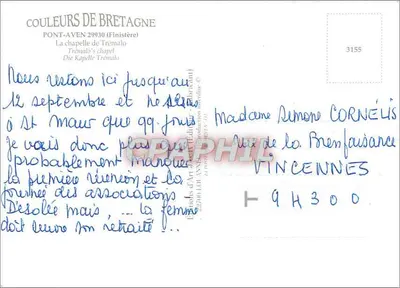 COULEURS DE BRETAGNE
PONT-AVEN 29930 (Finistère)
La chapelle de Tremalo
Tremalo's chapel
Die Kapelle Tremalo
3155
Nous restons ici jusqu'au
12 septembre et ne serons
à St Maur que qq. jours
je vais donc plus que
probablement manquer
la première réunion et la
journée des associations
Désolée mais, ... la femme
doit suivre son retraité ...
Madame Simone CORNÉLIS
rue de la Bienfaisance
VINCENNES
94300
CPAPHIL